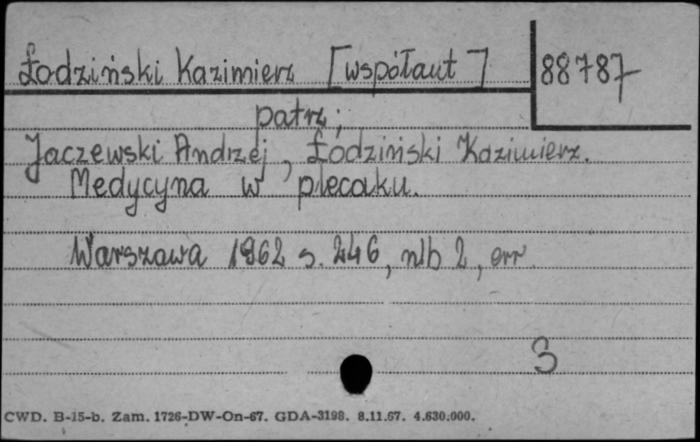 Łodziński Kazimierz [współaut]
88787
patrz:
Jaczewski Andrzej, Łodziński Kazimierz.
Medycyna w plecaku.
Warszawa 1962 s. 246, nlb 2, err
3
CWD. B-15-b. Zam. 1726-DW-On-67. GDA-3198. 8.11.67. 4.630.000.